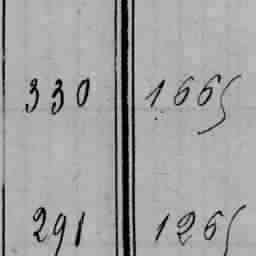 330 1665
291 1265